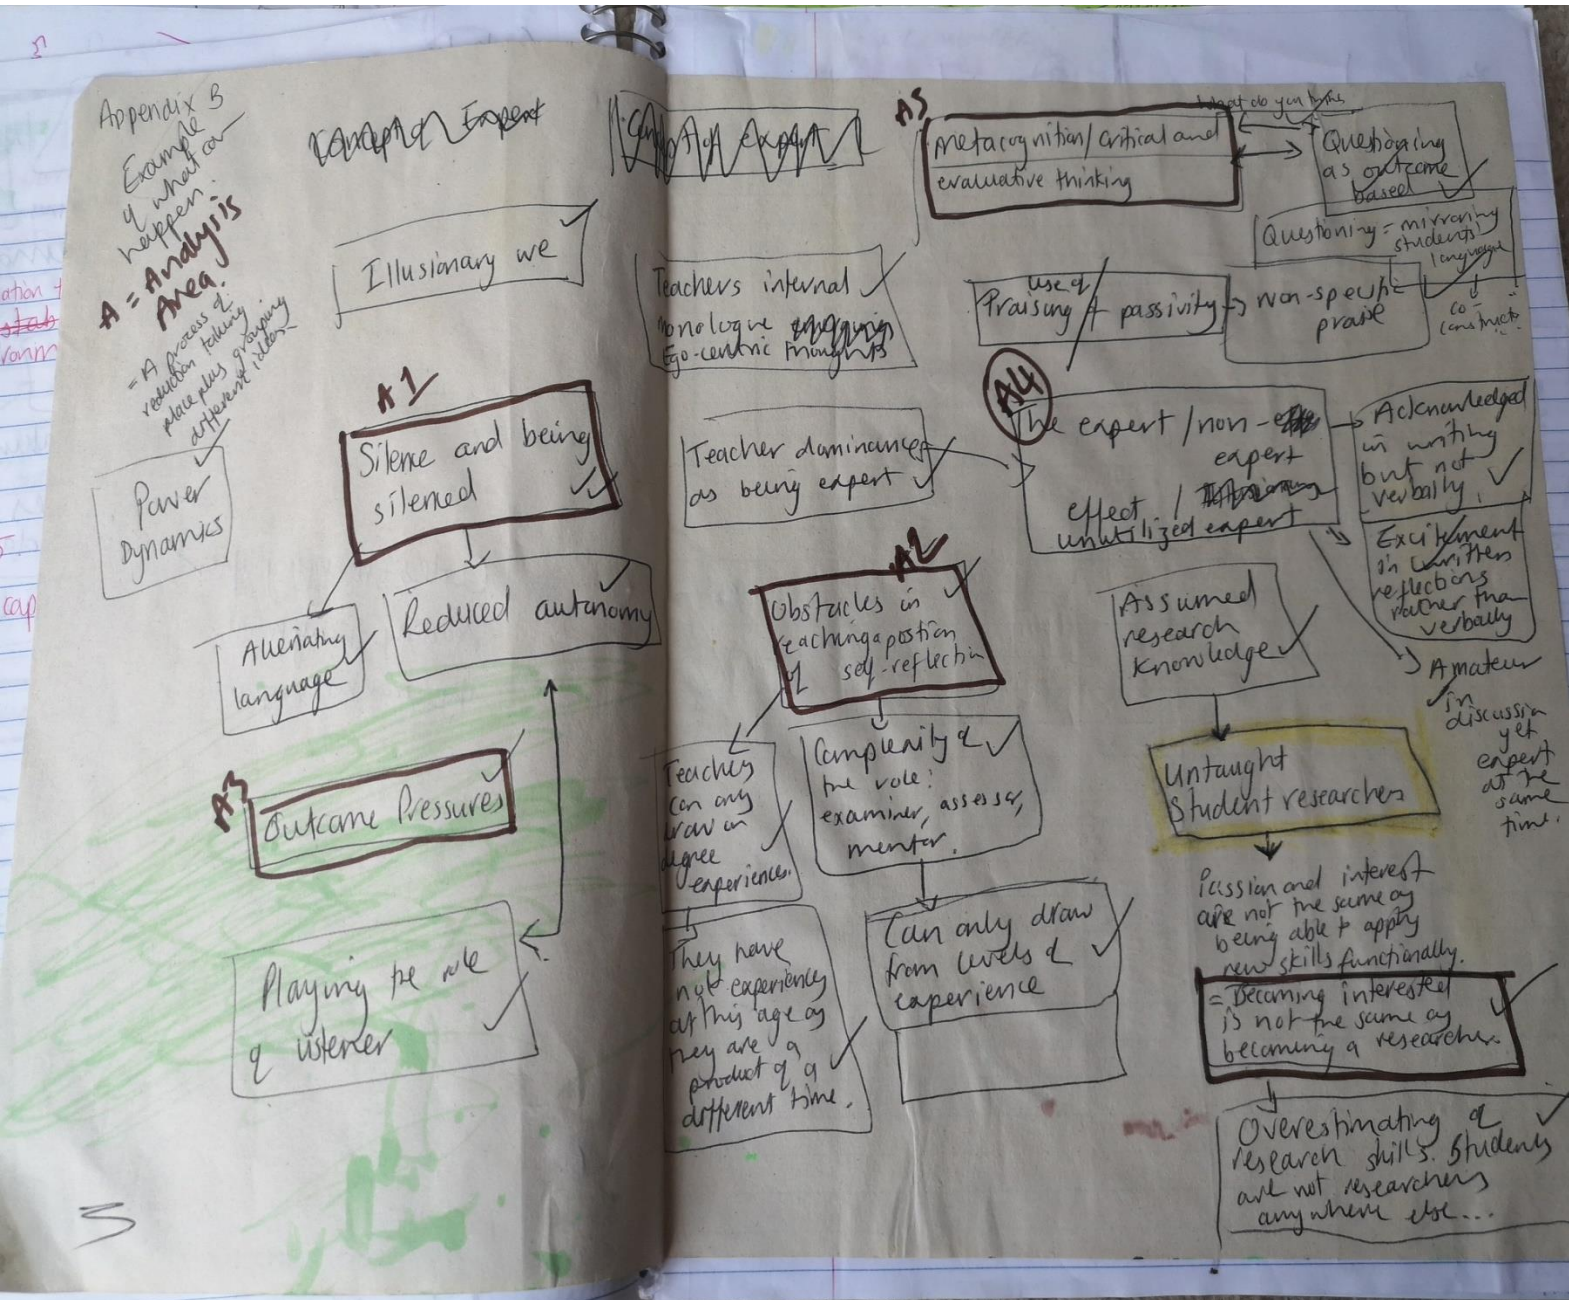 Appendix B
Example
of what can
happen.
A = Analysis
Area.
= A process of
reduction taking
place plus grouping
different ideas
Power
Dynamics
Expert
Illusionary we
A1
Silence and being
silenced
Alienating
language
Reduced autonomy
A3
Outcome Pressures
Playing the role
of listener
3
Teachers internal
monologue
Ego-centric thoughts
Teacher dominance
as being expert
A2
Obstacles in
reaching a position
of self-reflection
Teachers
can only
draw on
degree
experiences.
They have
not experiences
at this age as
they are a
product of a
different time.
Complexity of
the role:
examiner, assessor,
mentor.
Can only draw
from levels of
experience
A5
metacognition/critical and
evaluative thinking
what do you
Questioning
as outcome
based
Questioning = mirroring
students
language
co
construct
use of
Praising + passivity
non-specific
praise
A4
The expert /non-
expert
effect /
unutilized expert
Acknowledged
in writing
but not
verbally.
Excitement
in written
reflections
rather than
verbally
Amateur
in
discussion
yet
expert
at the
same
time.
Assumed
research
knowledge
Untaught
Student researchers
Passion and interest
are not the same as
being able to apply
new skills functionally.
= Becoming interested
is not the same as
becoming a researcher.
Overestimating of
research skills. Students
are not researchers
anywhere else...